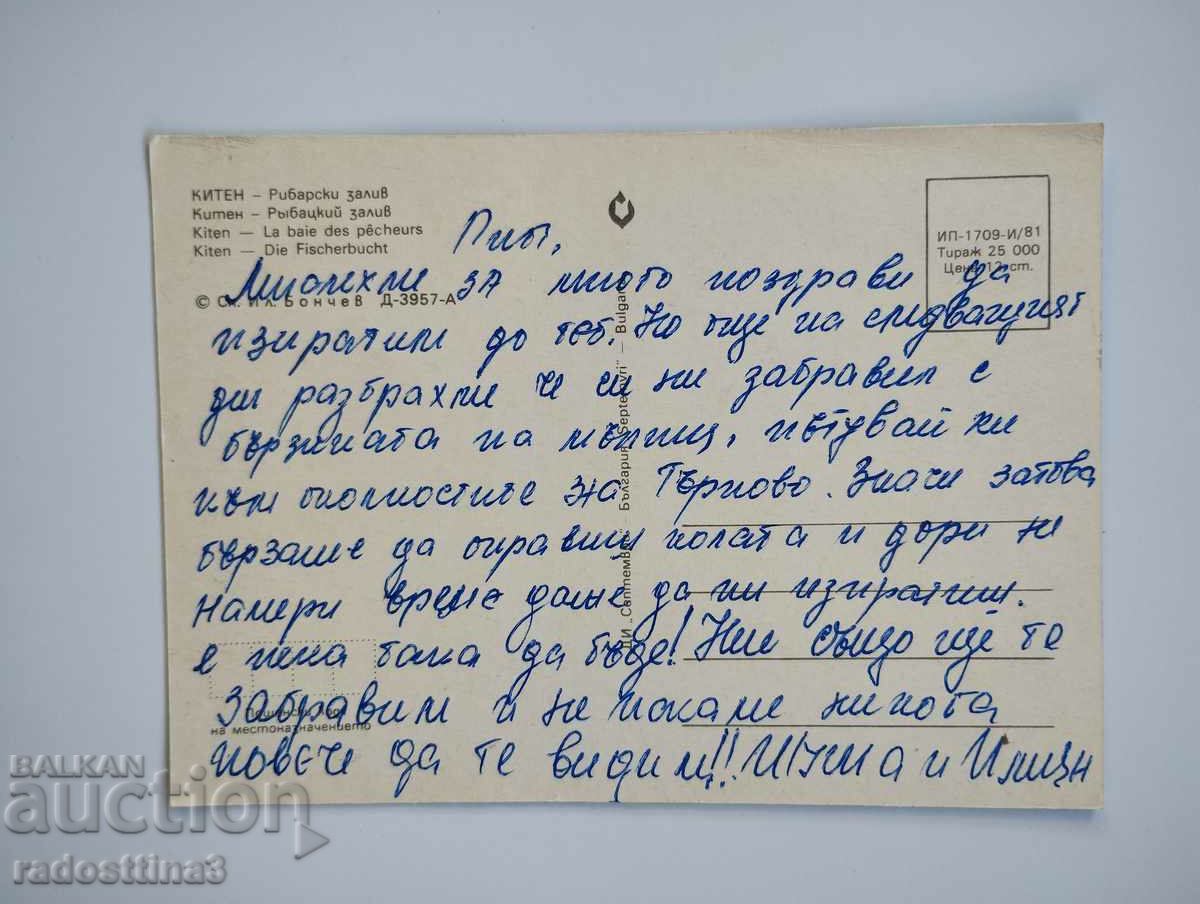 КИТЕН – Рибарски залив
Китен – Рыбацкий залив
Kiten — La baie des pêcheurs
Kiten — Die Fischerbucht
© Сн. Ил. Бончев Д-3957-А
ИП-1709-И/81
Тираж 25 000
Цена 12 ст.
ДИ „Септември“ – България „Septemvri“ – Bulgarie
Пит,
Мислехме за много поздрави да
изиратим до теб. Но още на следващият
ден разбрахме че си ни забравил с
бързината на мълния, пътувай ки
към за Търново. Значи затова
бързаше да оправиш колата и дори не
намери време даже да ни изпратиш.
е нека така да бъде! Ние също ще те
забравим и не искаме никога
повече да те видим!! и Илиян
Пощенски код
на местоназначението
BALKAN
auction
radosttina3